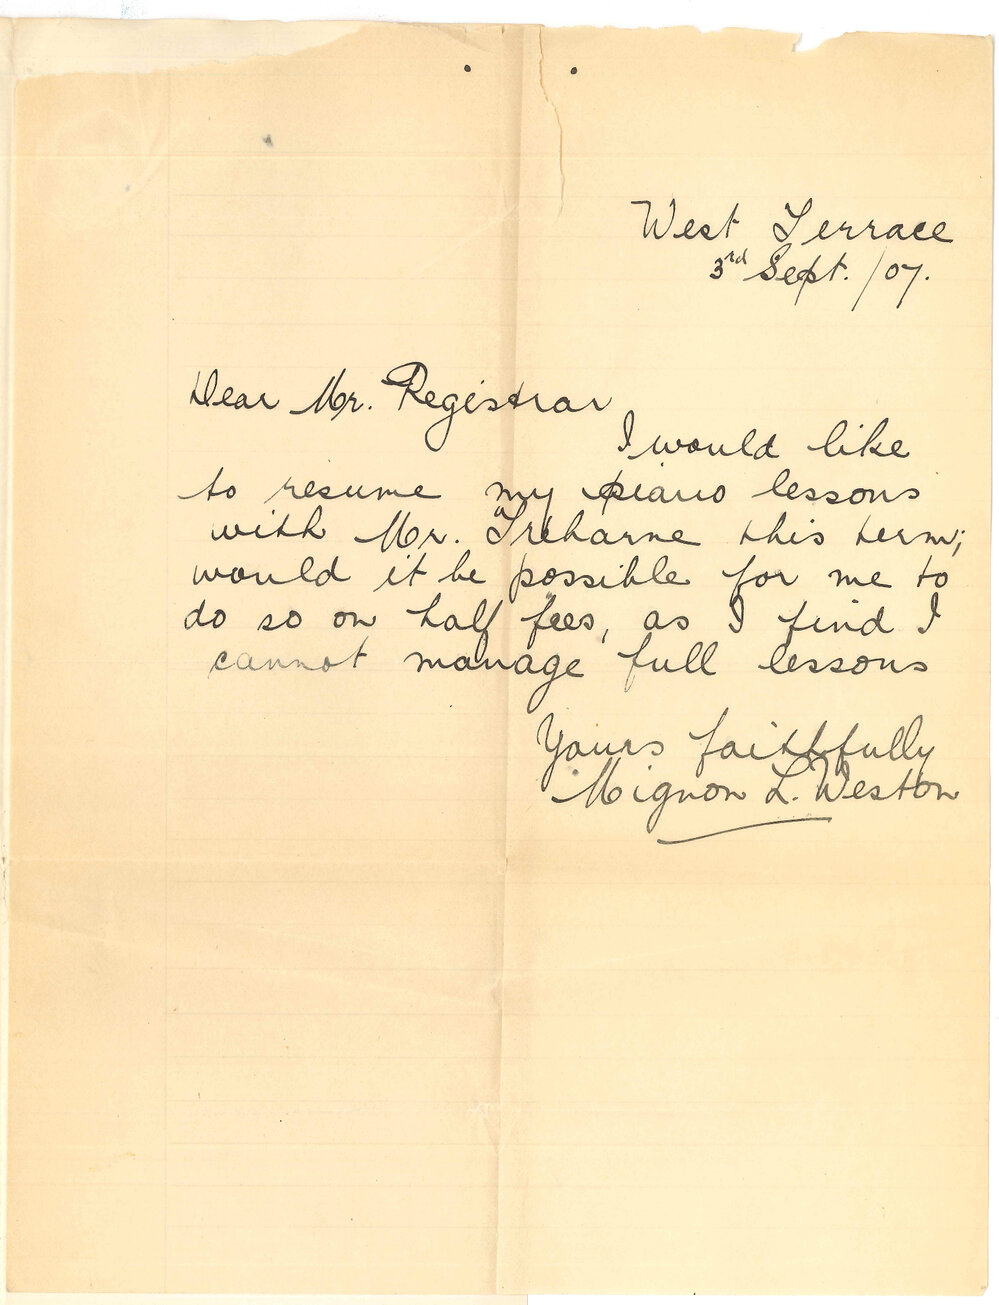 West Terrace
3rd Sept. /07.
Dear Mr. Registrar
I would like
to resume my piano lessons
with Mr. Treharne this term;
would it be possible for me to
do so on half fees, as I find I
cannot manage full lessons
Yours faithfully
Mignon L. Weston